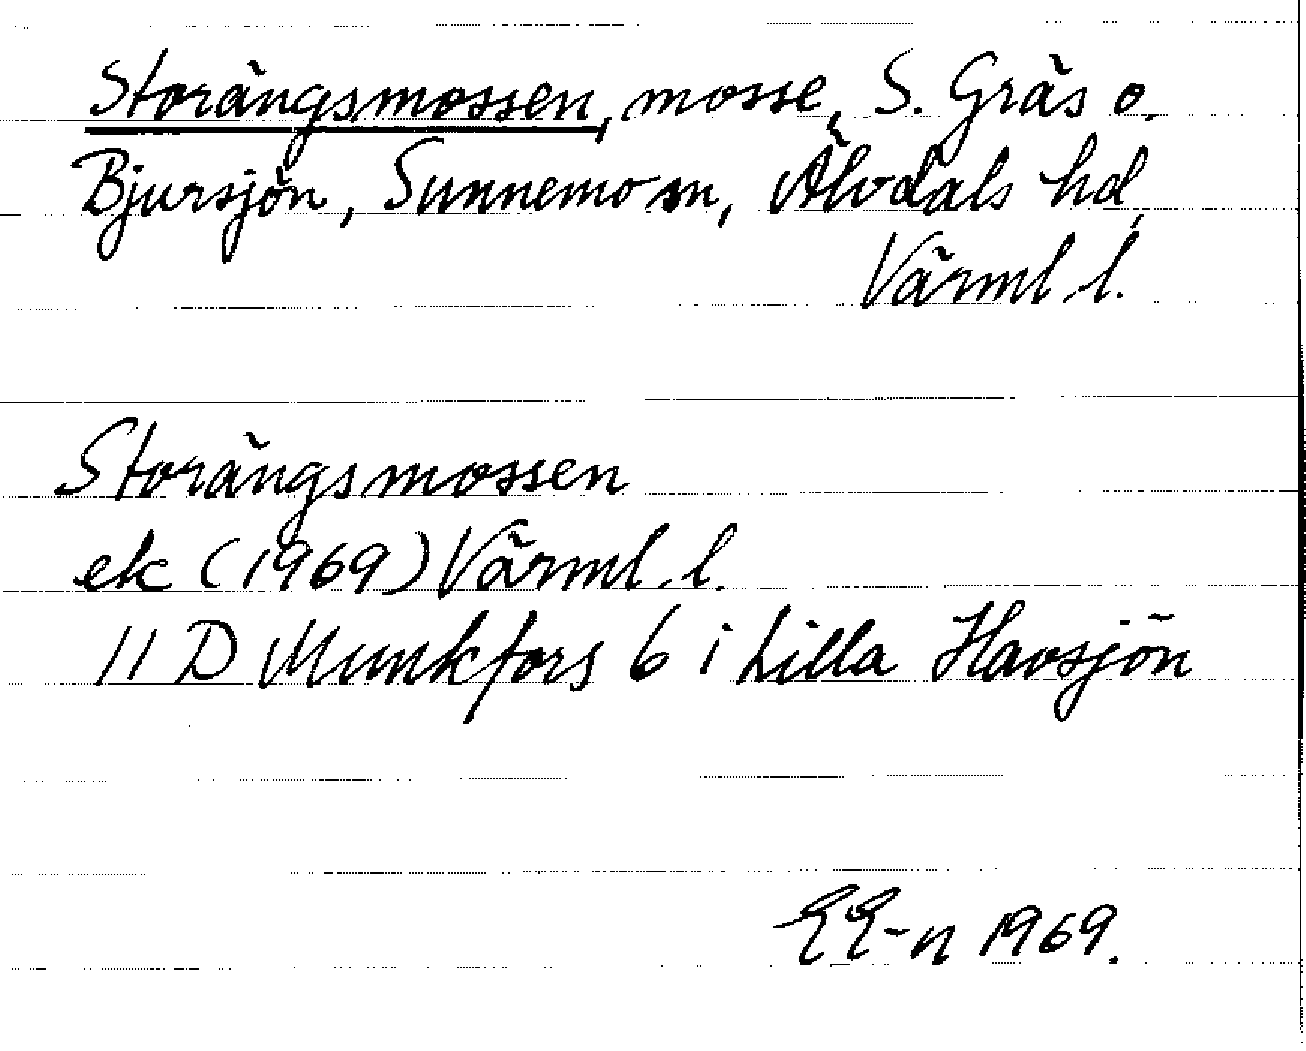 Storängsmossen, mosse, S. Gräs o.
Bjursjön, Sunnemo sn, Älvdals hd,
Värml. l.
Storängsmossen
ek (1969) Värml. l.
11 D Munkfors 6 i Lilla Havsjön
EE-n 1969.